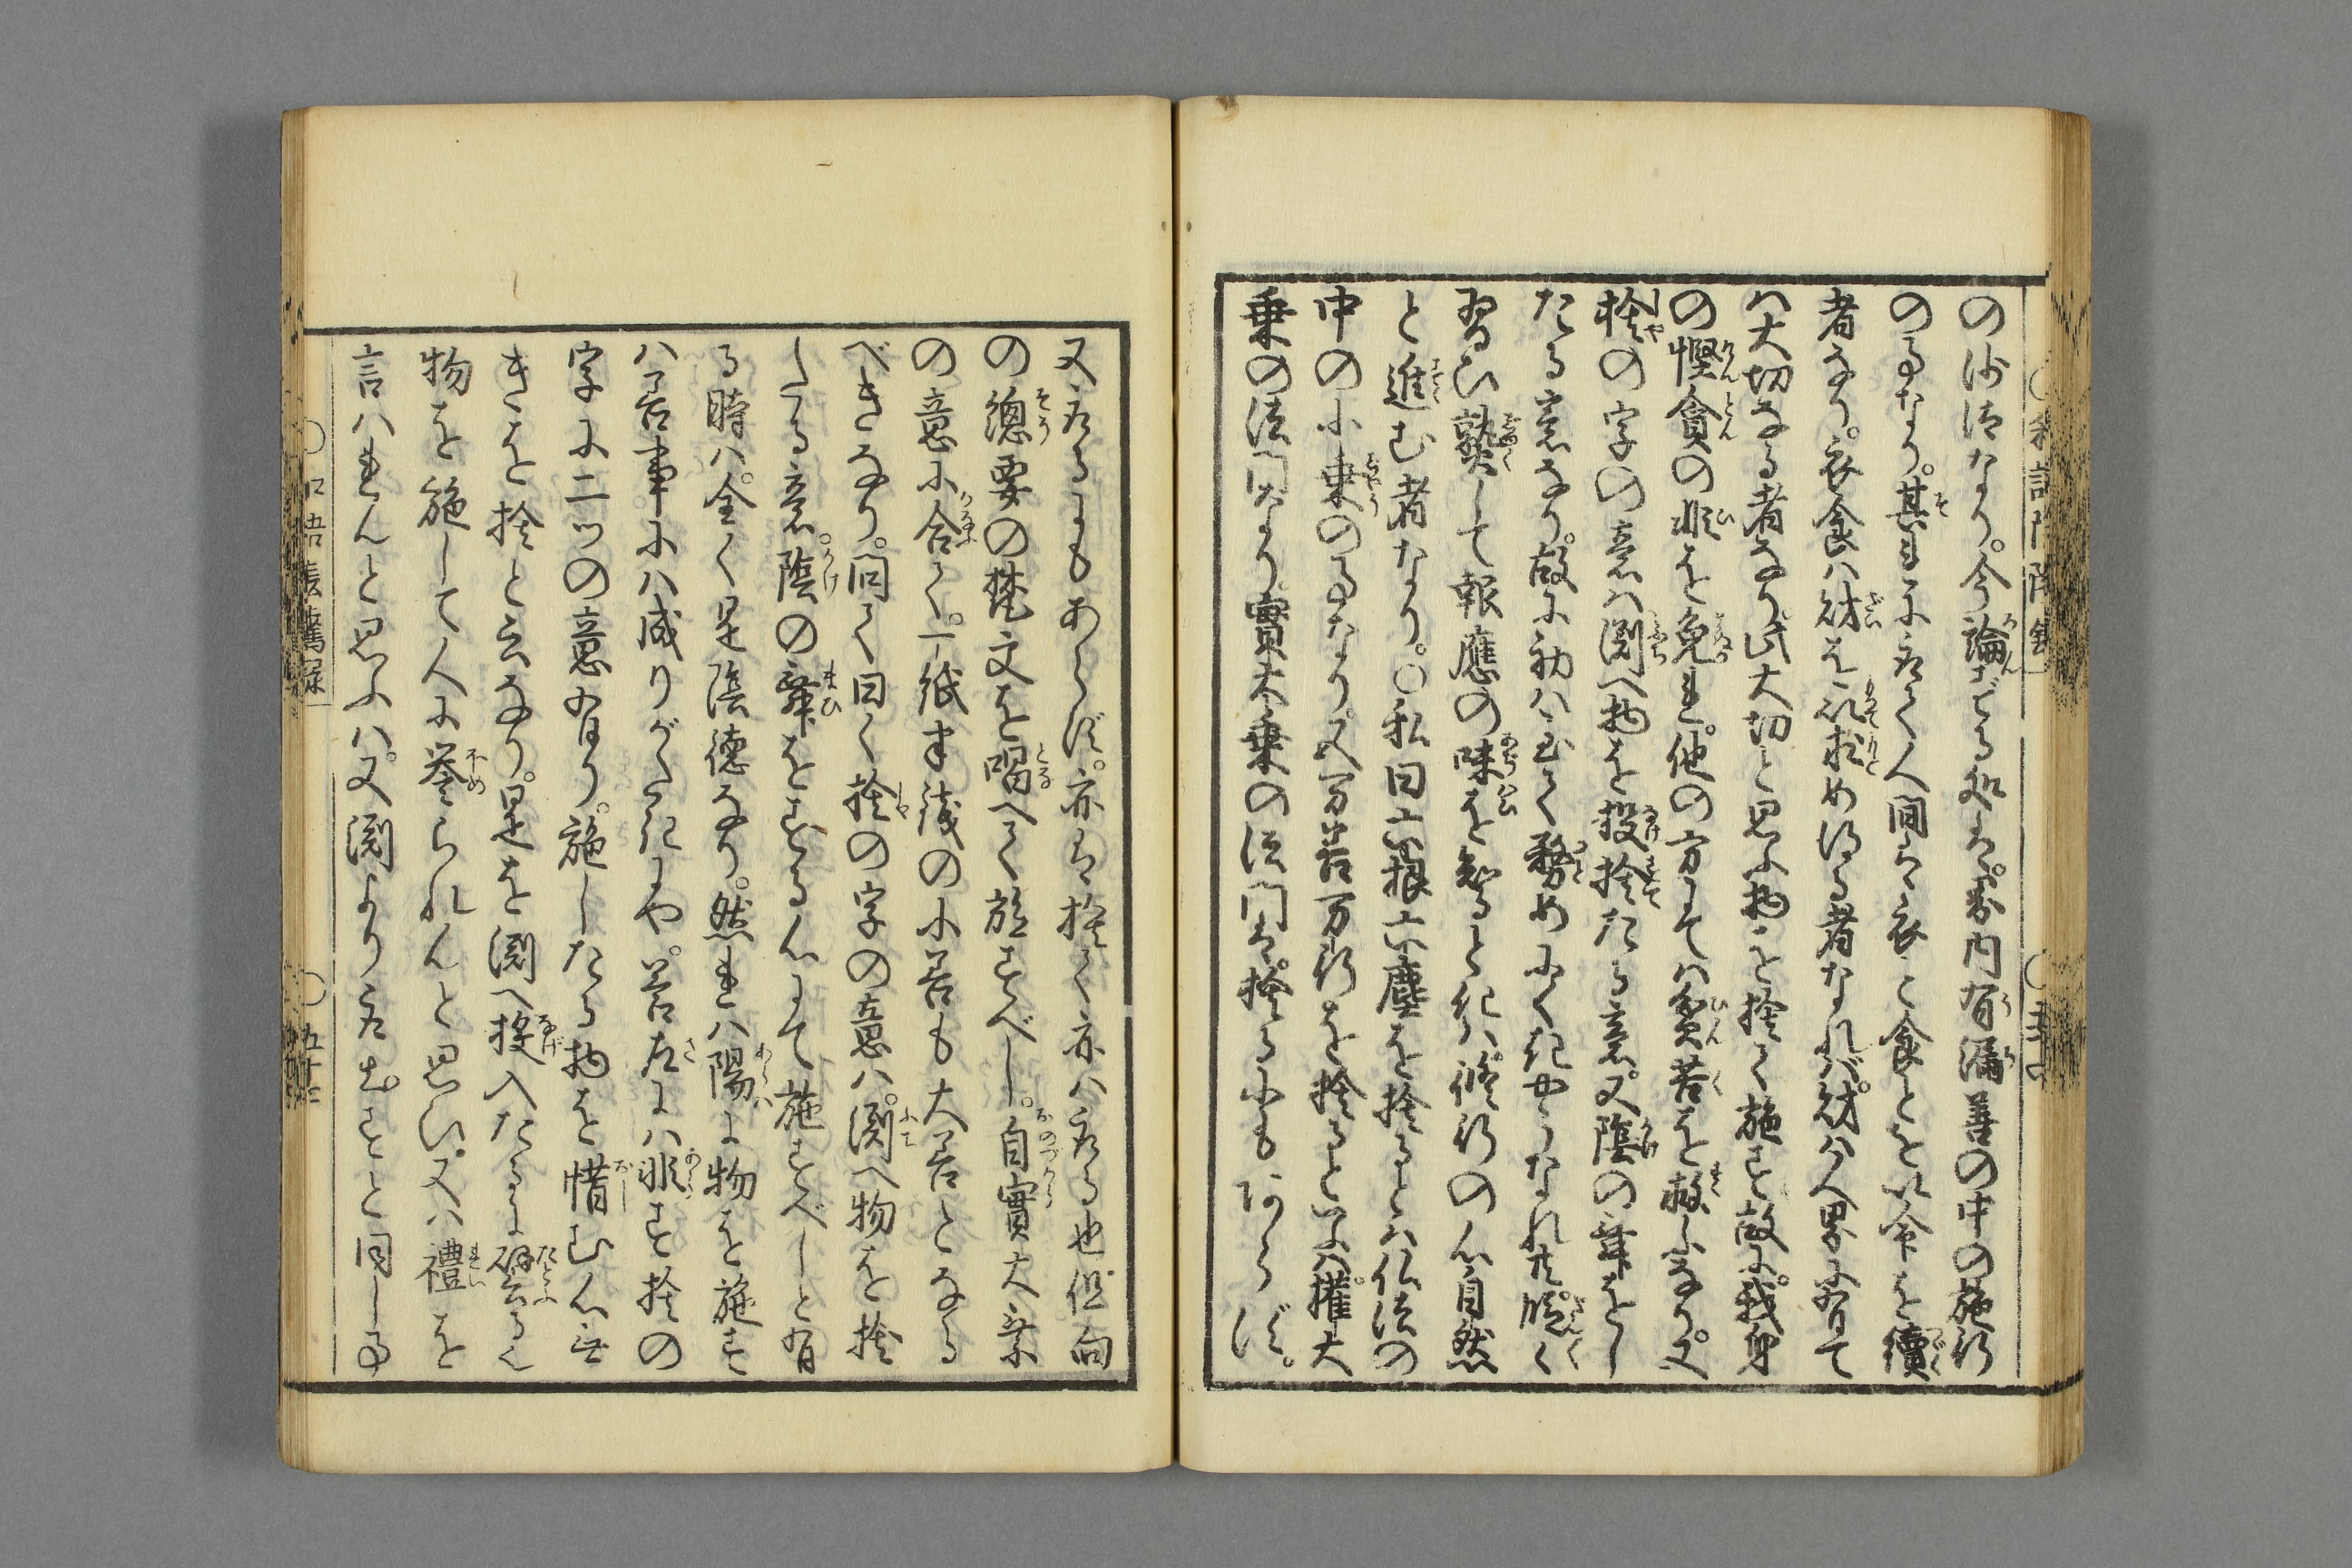 の沙汰なり。今論ずる処は。界内有漏善の中の施行
のるなり。其れに依て人間は衣と食とを以命を續
者なり。衣食ハ財を以求め得る者なれバ。財ハ人界に有て
ハ大切なる者なり此大切と思ふ物を捨て施す故に。我身
の慳貪の非を免れ。他の方にてハ貧苦を救ふなり。又
捨の字の意ハ渕へ物を投捨たる意。又陰の舞をし
たる意なり。故に初ハ至て務めにくきやうなれ共。
習ひ熟して報應の味を知るときハ。修行の心自然
と進む者なり。〇私曰六根六塵を捨るとハ仏法の
中の小乗のるなり。又万善万行を捨るといふハ。權大
乗の法門なり實大乗の法門は。捨るにもあらず。
又取るにもあらず。亦は捨て亦ハ取る也但向
の總要の梵文を唱へて施すべし。自實大乗
の意に合て。一紙半銭の小善も大善となる
べきなり。問て曰く捨の字の意ハ。渕へ物を捨
したる意。陰の舞をする心にて施すべしと有
る時ハ。全く是陰徳なり。然れハ陽に物を施す
ハ善事にハ成りがたきにや。答左にハ非ず捨の
字に二ツの意有り。施したる物を惜む心無
きを捨と云なり。是を渕へ投入たるに譬る也
物を施して人に誉られんと思ひ。又ハ禮を
言ハれんと思ふハ。又渕より取出すと同しる
〇五十七